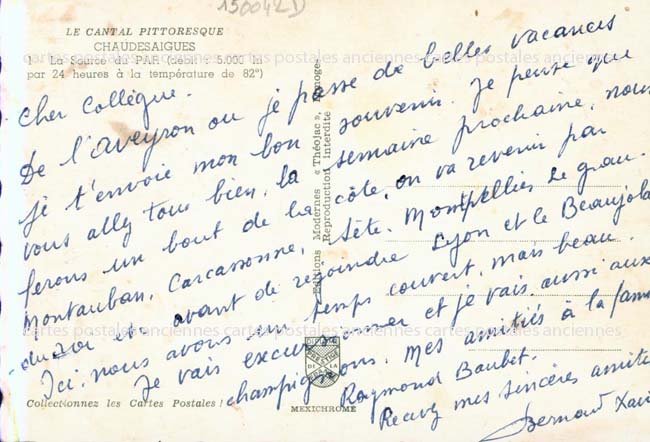 150042D
LE CANTAL PITTORESQUE
CHAUDESAIGUES
La Source du PAR (débit : 5.000 lm
par 24 heures à la température de 82°)
cartes postales anciennes cartes postales anciennes cartes postales anciennes
Cher Collègue.
De l'Aveyron ou je passe de belles vacances
je t'envoie mon bon souvenir. Je pense que
vous allez tous bien, la semaine prochaine, nous
ferons un bout de la côte, on va revenir par
Montauban, Carcassonne, Sète. Montpellier Le grau
du roi et avant de rejoindre Lyon et le Beaujola
Ici, nous avons un temps couvert, mais beau.
Je vais excursionner et je vais aussi aux
champignons. Mes amitiés à la fam
Raymond Baubet.
Recevez mes sincères amitié
Bernard Xavi
Editions Modernes « Théojac », Limoges
Reproduction Interdite
cartes postales anciennes cartes postales anciennes cartes postales anciennes
PRESTIGE
DE LA
Collectionnez les Cartes Postales !
MEXICHROME